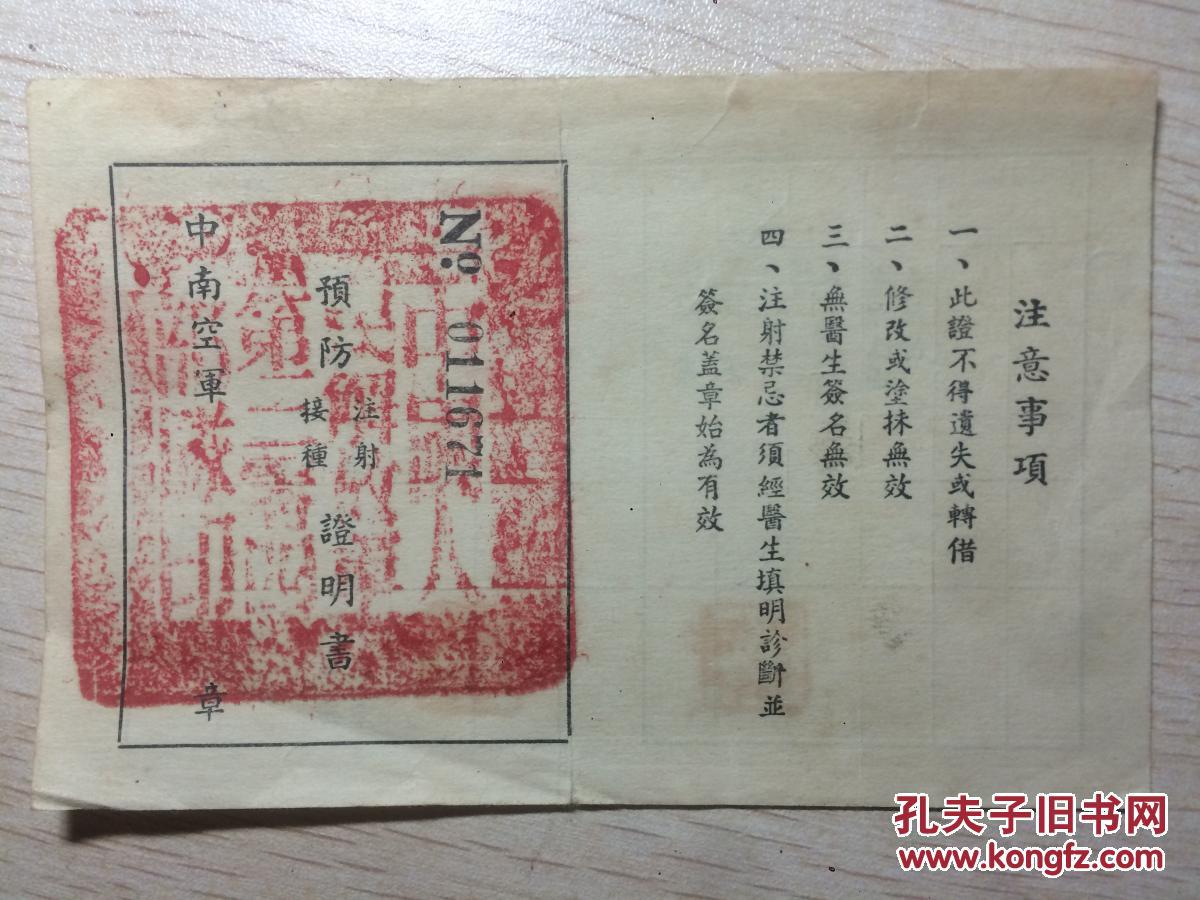 注意事項
一、此證不得遺失或轉借
二、修改或塗抹無效
三、無醫生簽名無效
四、注射禁忌者須經醫生填明診斷並
簽名蓋章始為有效
No. 011671
預防注射接種證明書
中南空軍 章
孔夫子旧书网
www.kongfz.com